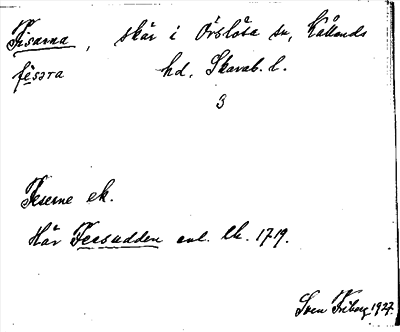 Fisarna, skär i Örslösa sn, Kållands
fesɔra hd, Skarab. l.
3
Feserne ek.
Här Feesudden enl. lk. 1719.
Sven Friberg 1927.